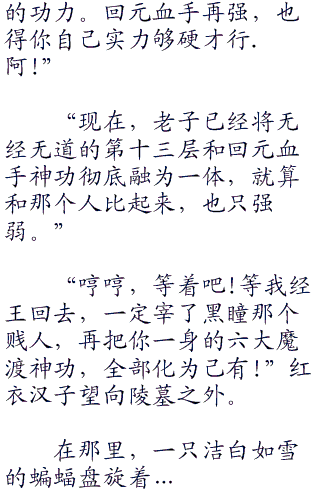 的功力。回元血手再强，也
得你自己实力够硬才行.
阿!”
“现在，老子已经将无
经无道的第十三层和回元血
手神功彻底融为一体，就算
和那个人比起来，也只强
弱。”
“哼哼，等着吧!等我经
王回去，一定宰了黑瞳那个
贱人，再把你一身的六大魔
渡神功，全部化为己有!”红
衣汉子望向陵墓之外。
在那里，一只洁白如雪
的蝙蝠盘旋着…